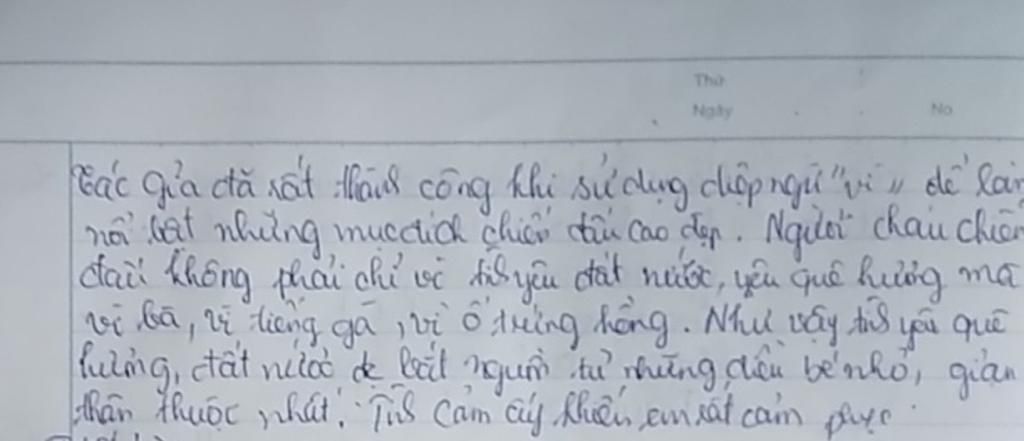 Thứ
Ngày No
Tác giả đã rất thành công khi sử dụng điệp ngữ "vì" để làm
nổi bật những mục đích chiến đấu cao đẹp. Người cháu chiến
đấu không phải chỉ vì tình yêu đất nước, yêu quê hương mà
vì bà, vì tiếng gà, vì ổ trứng hồng. Như vậy tình yêu quê
hương, đất nước bắt nguồn từ những điều bé nhỏ, giản
thân thuộc nhất. Tình cảm ấy khiến em rất cảm phục